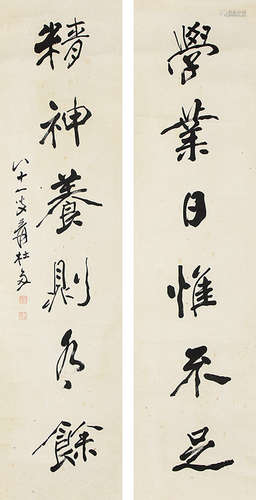 學業日惟不足
精神養則有餘
八十一叟爰杜多